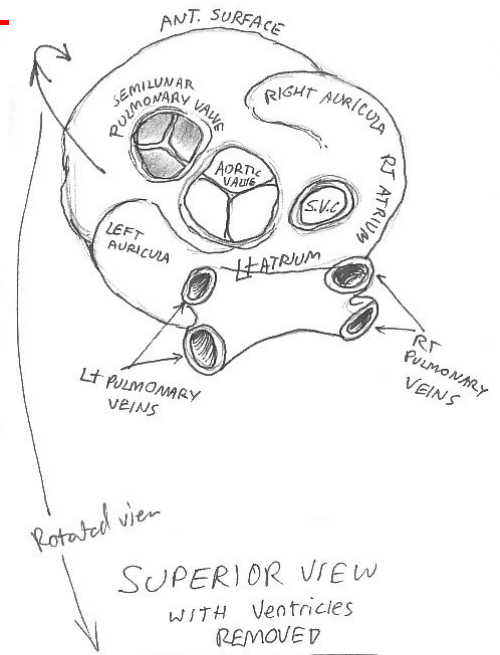 ANT. SURFACE
SEMILUNAR
PULMONARY VALVE
RIGHT AURICULA
AORTIC
VALVE
S.V.C
RT ATRIUM
LEFT
AURICULA
Lt ATRIUM
Lt PULMONARY
VEINS
RT
PULMONARY
VEINS
Rotated view
SUPERIOR VIEW
WITH Ventricles
REMOVED